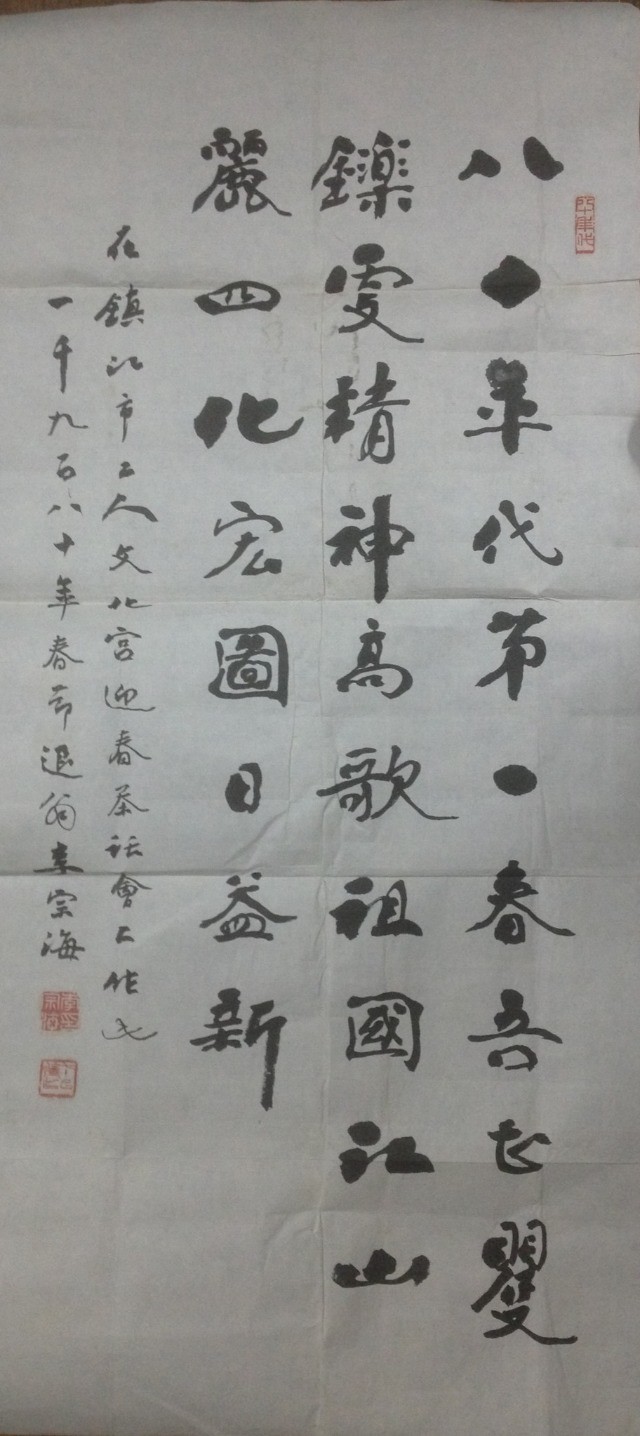 八十年代第一春吾矍
鑠雯精神高歌祖國江山
麗四化宏圖日益新
在鎮江市工人文化宮迎春茶話會上作也
一千九百八十年春節退翁李宗海